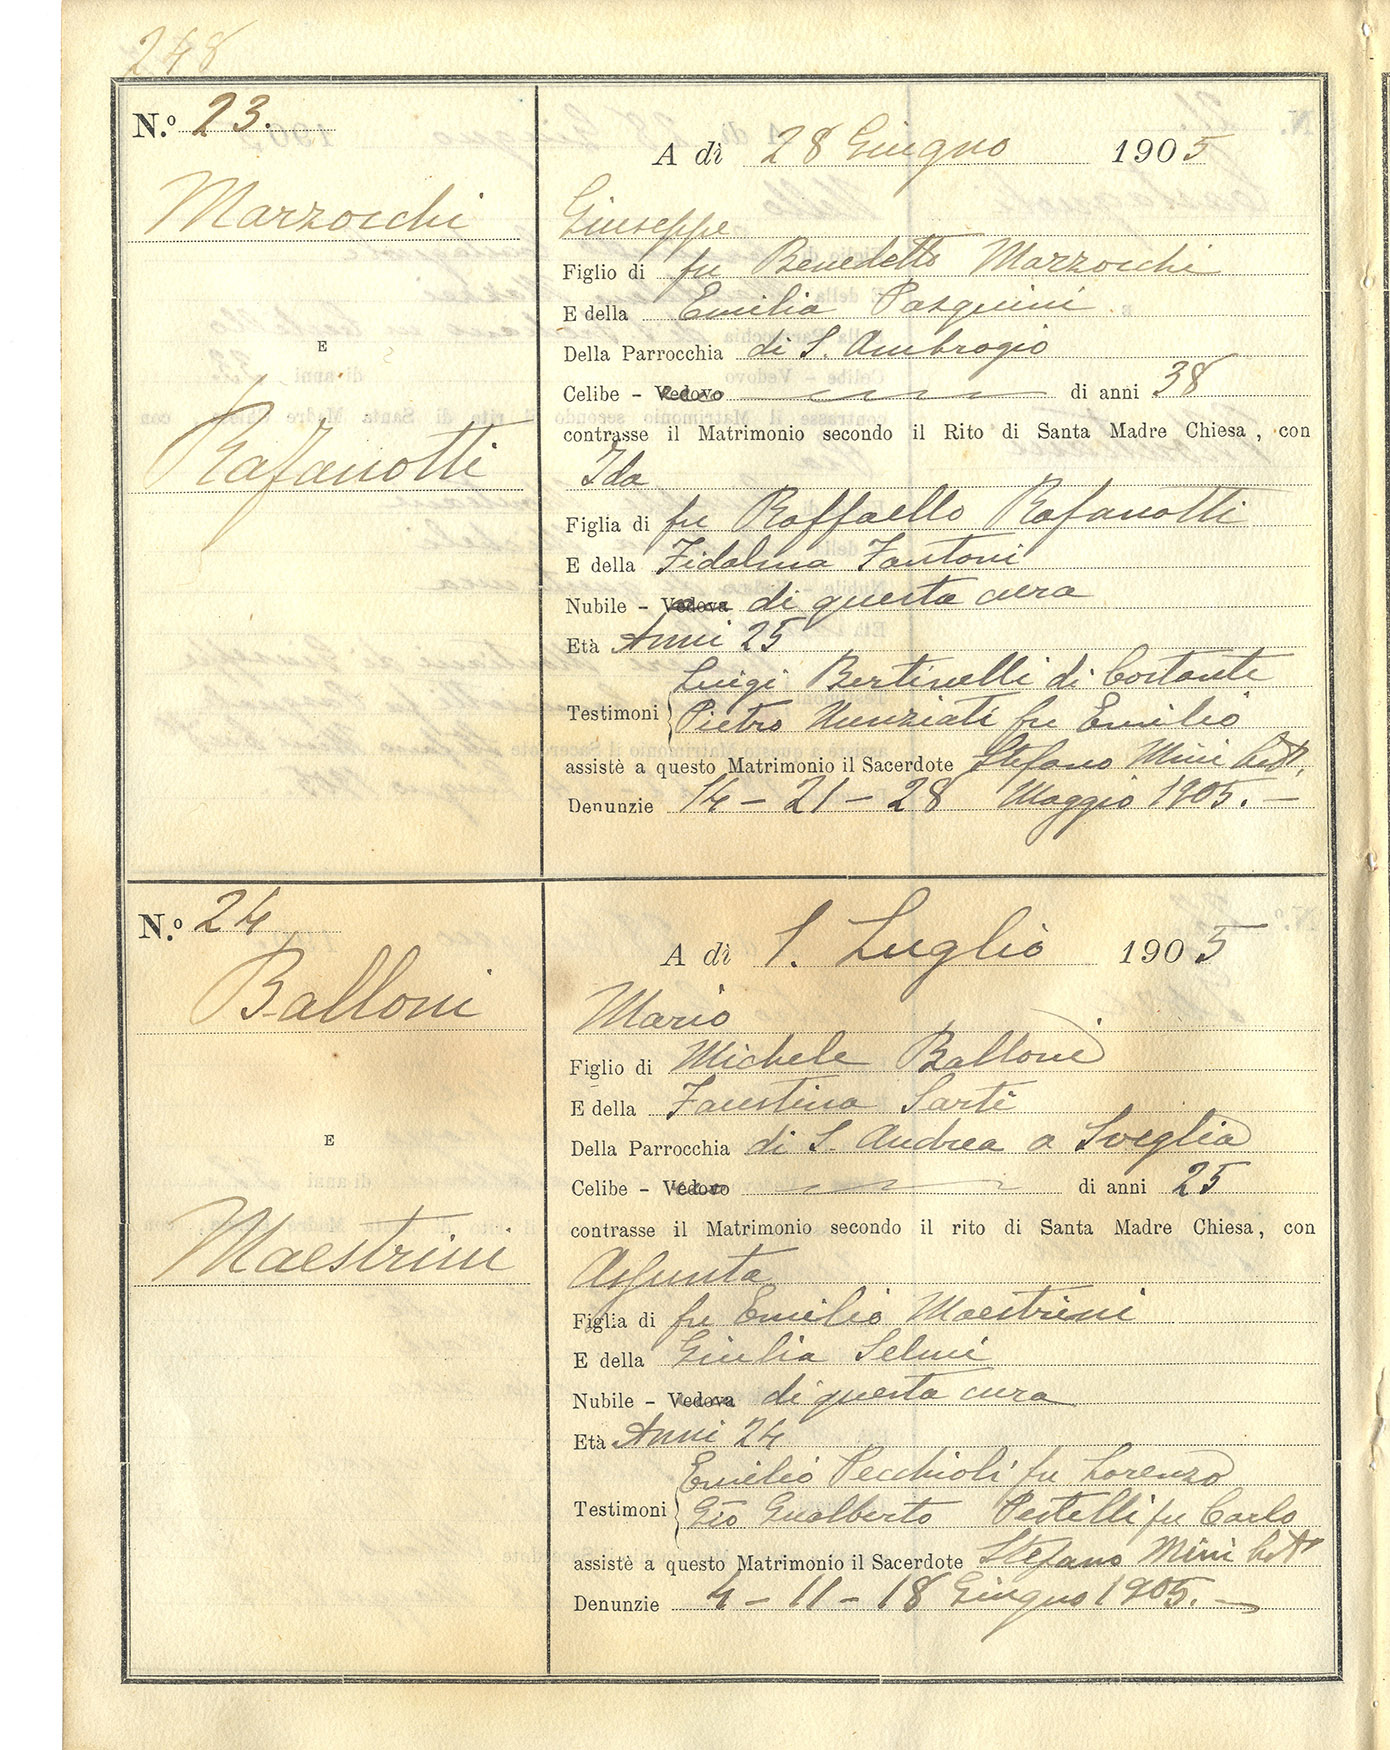 248
N.º 23.
A dì 28 Giugno 1905
Marzocchi
Giuseppe
Figlio di fu Benedetto Marzocchi
E della Emilia Pasquini
E
Della Parrocchia di S. Ambrogio
Celibe - Vedovo di anni 38
contrasse il Matrimonio secondo il Rito di Santa Madre Chiesa, con
Rafanotti
Ida
Figlia di fu Raffaello Rafanotti
E della Fidalma Fantoni
Nubile - Vedova di questa cura
Età Anni 25
Luigi Bertinelli di Costante
Testimoni
Pietro Nunziati fu Emilio
assistè a questo Matrimonio il Sacerdote Stefano Mini
Denunzie 14 - 21 - 28 Maggio 1905. -
N.º 24
A dì 1. Luglio 1905
Balloni
Mario
Figlio di Michele Balloni
E della Faustina Sarti
E
Della Parrocchia di S. Andrea a Sveglia
Celibe - Vedovo di anni 25
contrasse il Matrimonio secondo il rito di Santa Madre Chiesa, con
Maestrini
Assunta
Figlia di fu Emilio Maestrini
E della Giulia Selmi
Nubile - Vedova di questa cura
Età Anni 24
Emilio Pecchioli fu Lorenzo
Testimoni
Gio Gualberto Pestelli fu Carlo
assistè a questo Matrimonio il Sacerdote Stefano Mini
Denunzie 4 - 11 - 18 Giugno 1905. -